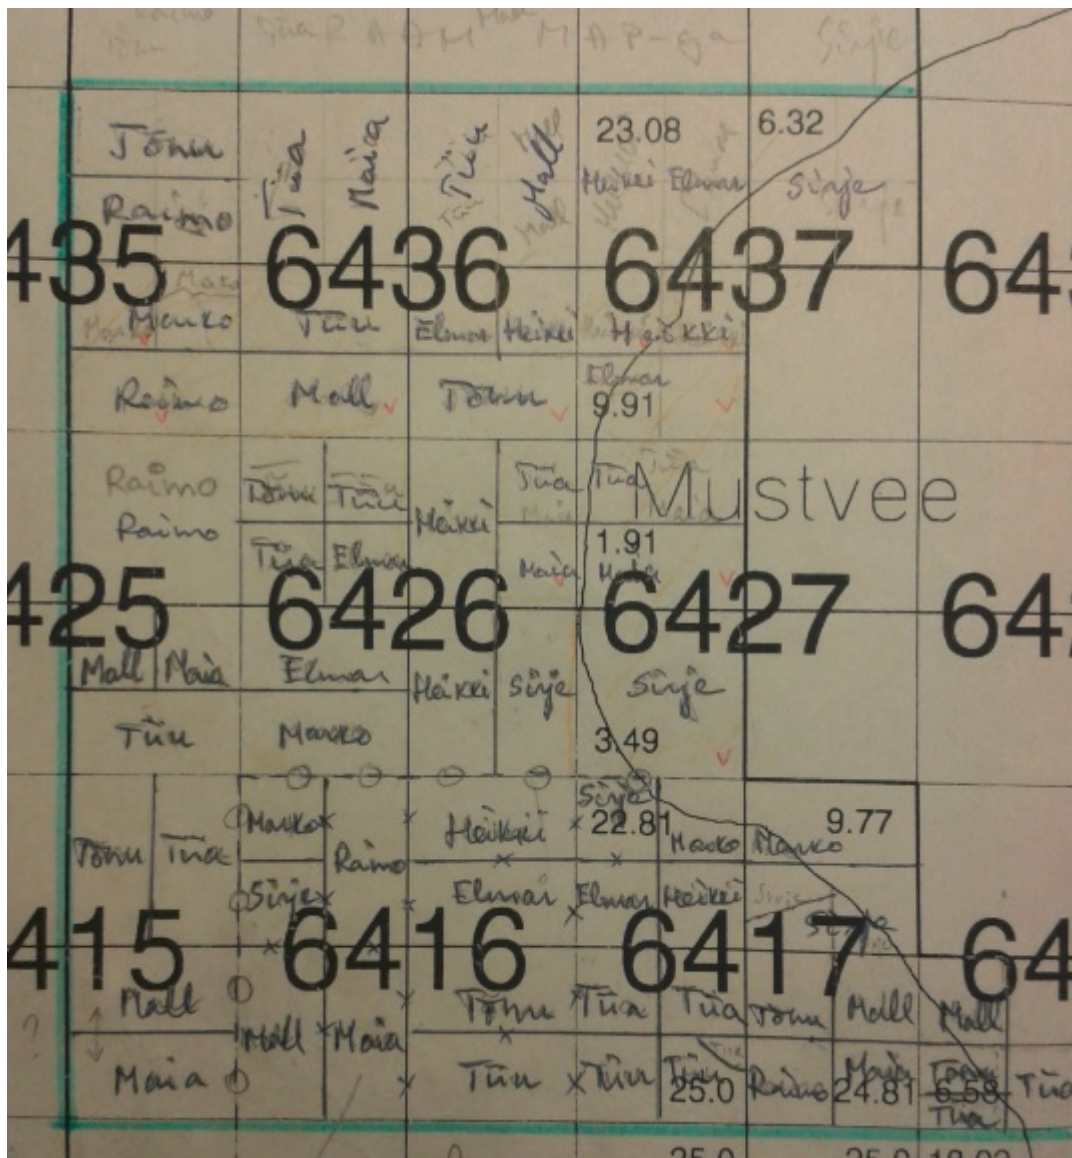 Raimo Mall
Tõnu Tiia RAAM MAP-iga Sirje
Tõnu Tiia Maia Tiiu Mall 23.08 6.32
Heikki Elmar Sirje
Raimo
435 6436 6437 64
Marko Tiiu Elmar Heikki Heikki
Raimo Mall Tõnu Elmar
9.91
Raimo Tõnu Tiiu Heikki Tiia Tiia Mustvee
Raimo
Tiia Elmar Maia 1.91
Maia
425 6426 6427 64
Mall Maia Elmar Heikki Sirje Sirje
Tiiu Marko 3.49
Sirje
Marko Heikki 22.81 Marko Marko 9.77
Tõnu Tiia Raimo
Sirje Elmar Elmar Heikki Sirje
415 6416 6417 64
Mall Tõnu Tiia Tiia Tõnu Mall Mall
? Mall Maia
Maia Tiiu Tiiu Tiiu Raimo Maia Tiia
25.0 24.81 6.58
Tiia
25.0 25.0 18.02